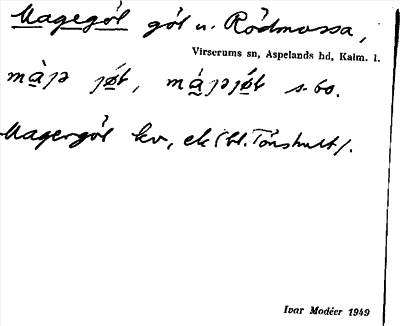 Magegöl göl u. Rödmossa,
Virserums sn, Aspelands hd, Kalm. l.
s-bo.
Magergöl kv, ek (bl. Tönshult).
Ivar Modéer 1949